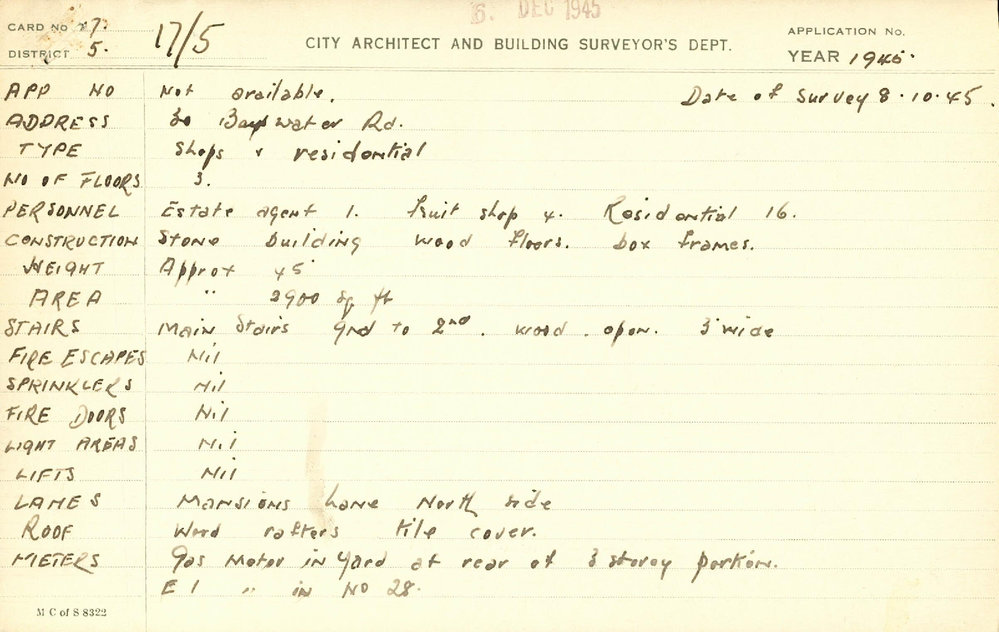 6. DEC 1945
CARD No 17.
17/5
DISTRICT 5.
CITY ARCHITECT AND BUILDING SURVEYOR'S DEPT.
APPLICATION No.
YEAR 1945.
APP NO Not available. Date of survey 8.10.45.
ADDRESS 30 Bayswater Rd.
TYPE Shops & residential
NO OF FLOORS 3.
PERSONNEL Estate agent 1. fruit shop 4. Residential 16.
CONSTRUCTION Stone building wood floors. box frames.
HEIGHT Approx 45'
AREA " 2900 sq ft
STAIRS Main Stairs Grd to 2nd. wood. open. 3' wide
FIRE ESCAPES Nil
SPRINKLERS Nil
FIRE DOORS Nil
LIGHT AREAS Nil
LIFTS Nil
LANES Mansions Lane North side
ROOF Wood rafters tile cover.
METERS Gas Meter in yard at rear of 3 storey portion.
El " in No 28.
M C of S 8322